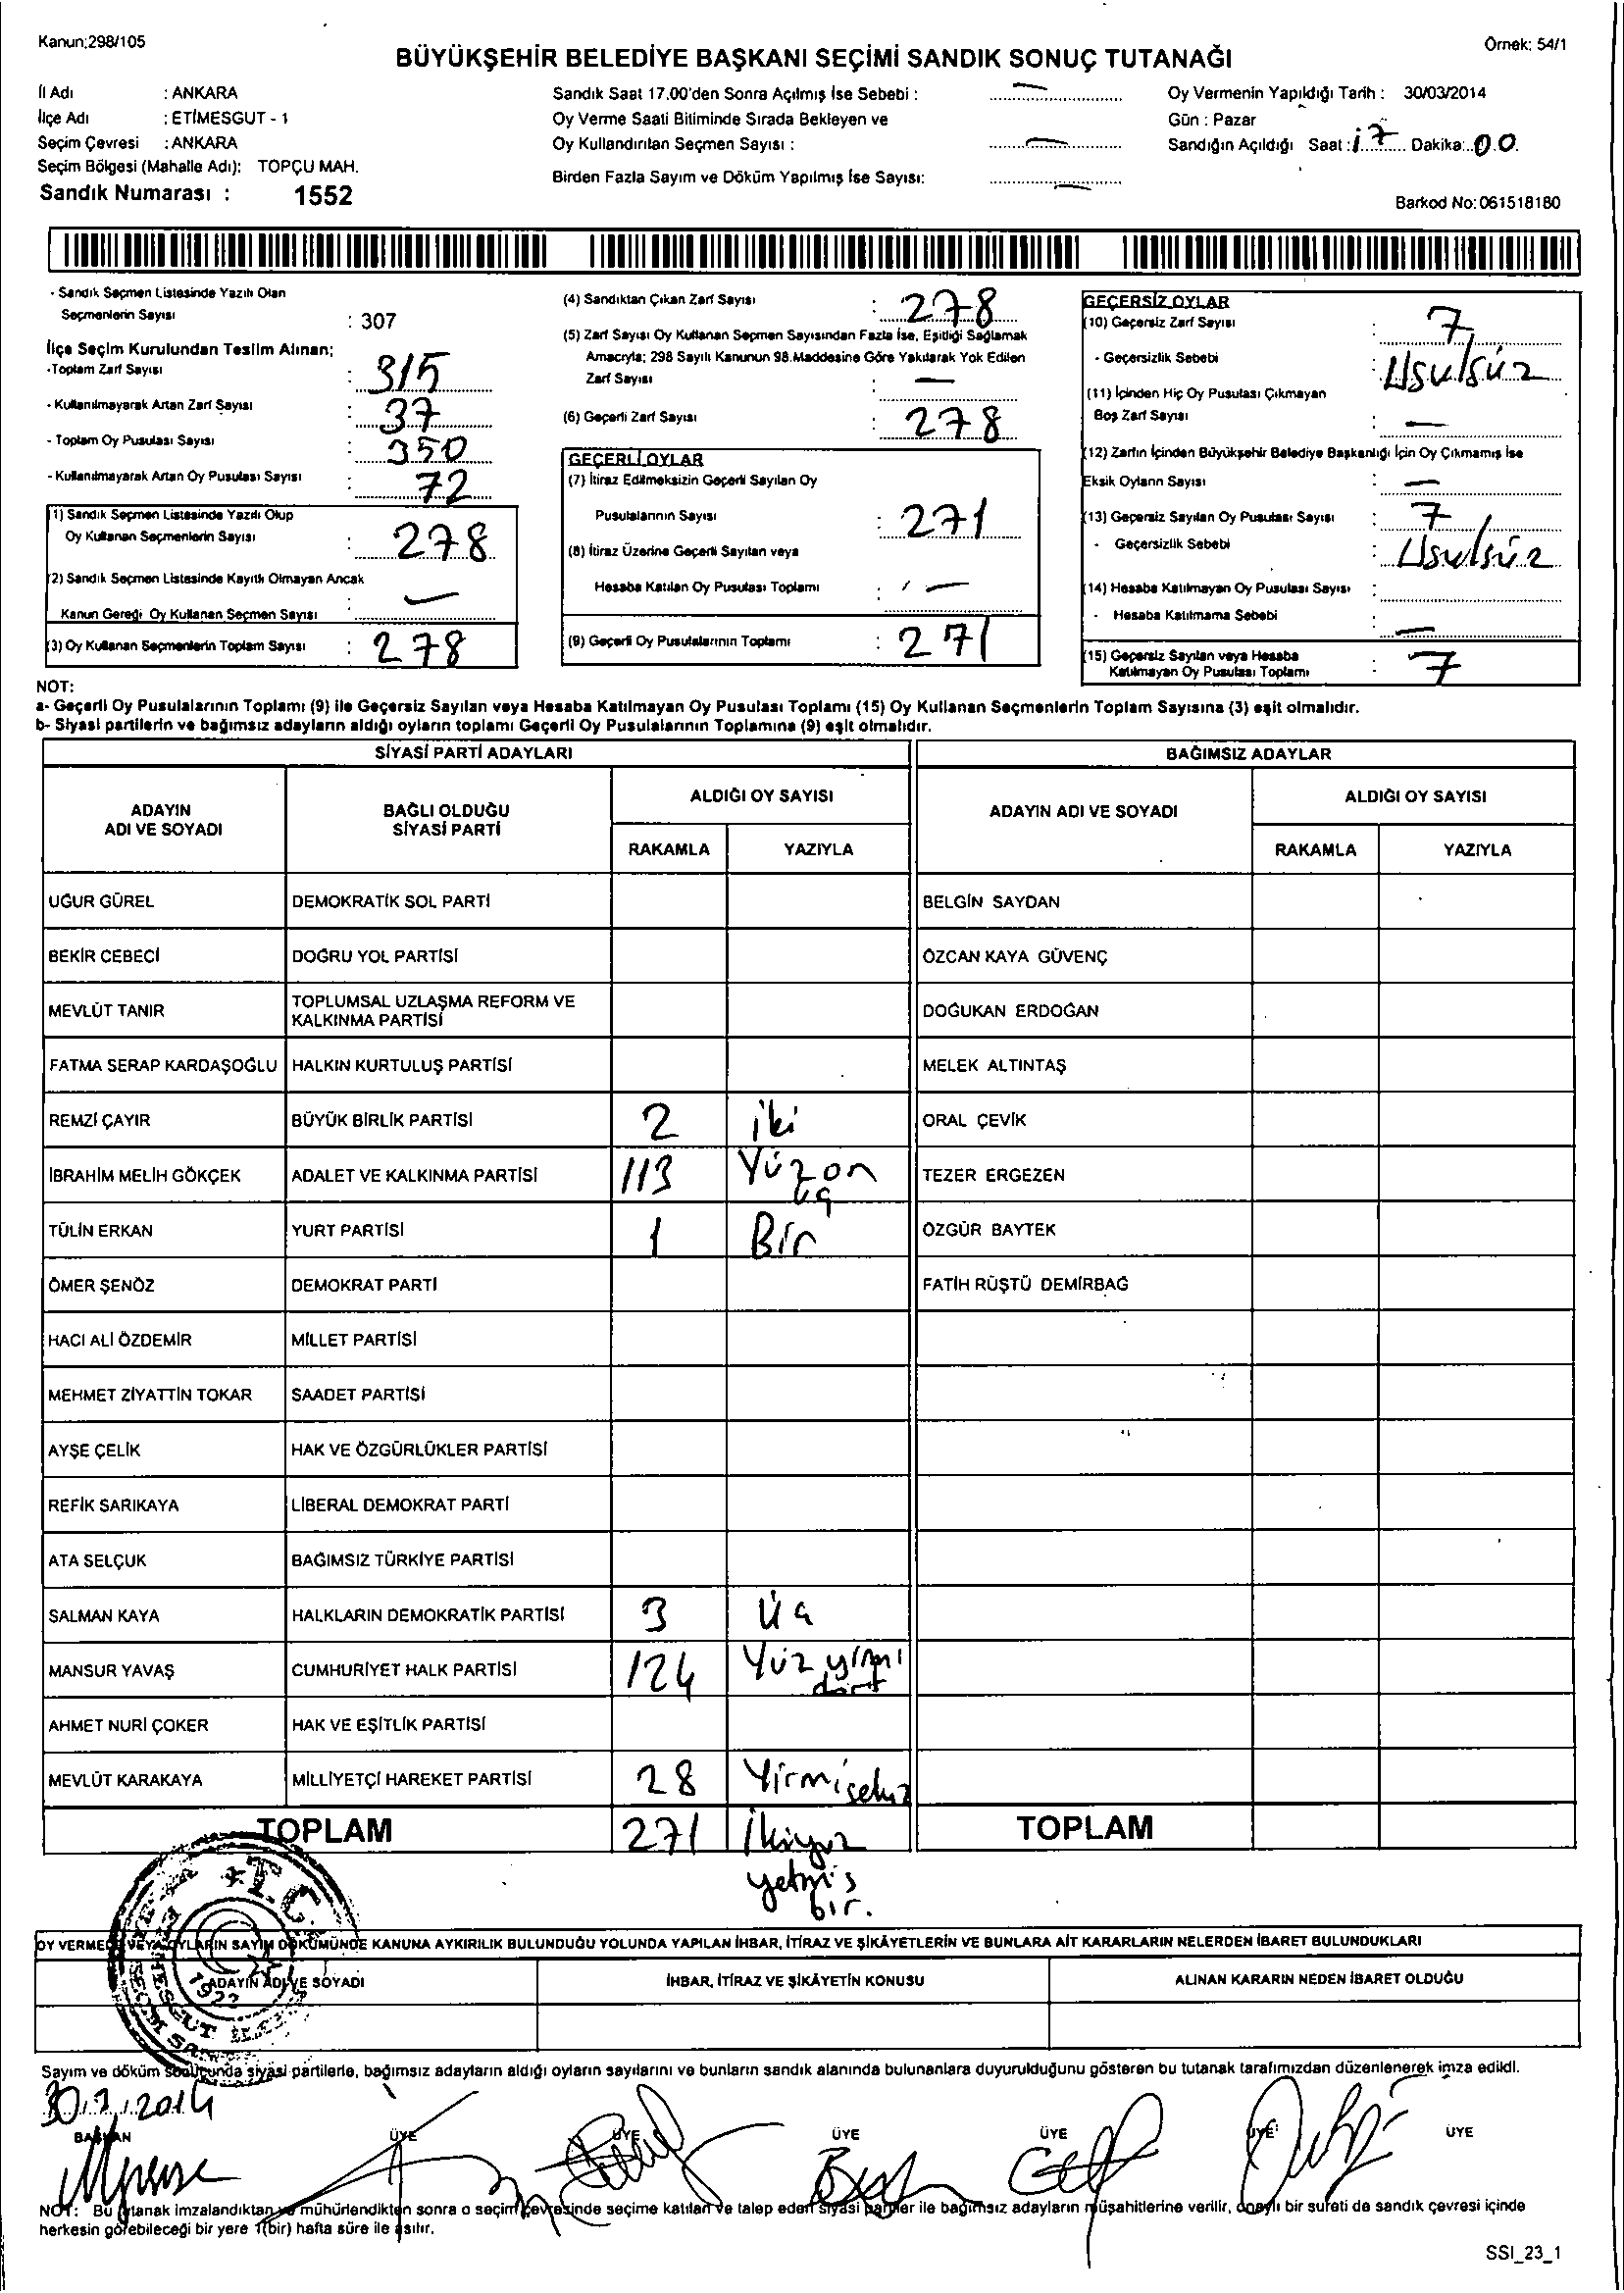 Kanun:298/105
Örnek: 54/1
BÜYÜKŞEHİR BELEDİYE BAŞKANI SEÇİMİ SANDIK SONUÇ TUTANAĞI
İl Adı : ANKARA
İlçe Adı : ETİMESGUT - 1
Seçim Çevresi : ANKARA
Seçim Bölgesi (Mahalle Adı): TOPÇU MAH.
Sandık Numarası : 1552
Sandık Saat 17.00'den Sonra Açılmış İse Sebebi : —
Oy Verme Saati Bitiminde Sırada Bekleyen ve
Oy Kullandırılan Seçmen Sayısı : —
Birden Fazla Sayım ve Döküm Yapılmış İse Sayısı: —
Oy Vermenin Yapıldığı Tarih : 30/03/2014
Gün : Pazar
Sandığın Açıldığı Saat : 17 Dakika: 00
Barkod No: 061518180
- Sandık Seçmen Listesinde Yazılı Olan
Seçmenlerin Sayısı : 307
İlçe Seçim Kurulundan Teslim Alınan;
-Toplam Zarf Sayısı : 315
- Kullanılmayarak Artan Zarf Sayısı : 37
- Toplam Oy Pusulası Sayısı : 350
- Kullanılmayarak Artan Oy Pusulası Sayısı : 72
(1) Sandık Seçmen Listesinde Yazılı Olup
Oy Kullanan Seçmenlerin Sayısı : 278
(2) Sandık Seçmen Listesinde Kayıtlı Olmayan Ancak
Kanun Gereği Oy Kullanan Seçmen Sayısı : —
(3) Oy Kullanan Seçmenlerin Toplam Sayısı : 278
(4) Sandıktan Çıkan Zarf Sayısı : 278
(5) Zarf Sayısı Oy Kullanan Seçmen Sayısından Fazla İse, Eşitliği Sağlamak
Amacıyla; 298 Sayılı Kanunun 98.Maddesine Göre Yakılarak Yok Edilen
Zarf Sayısı : —
(6) Geçerli Zarf Sayısı : 278
GEÇERLİ OYLAR
(7) İtiraz Edilmeksizin Geçerli Sayılan Oy
Pusulalarının Sayısı : 271
(8) İtiraz Üzerine Geçerli Sayılan veya
Hesaba Katılan Oy Pusulası Toplamı : —
(9) Geçerli Oy Pusulalarının Toplamı : 271
GEÇERSİZ OYLAR
(10) Geçersiz Zarf Sayısı : 7
- Geçersizlik Sebebi : Usulsüz
(11) İçinden Hiç Oy Pusulası Çıkmayan
Boş Zarf Sayısı : —
(12) Zarfın İçinden Büyükşehir Belediye Başkanlığı İçin Oy Çıkmamış İse
Eksik Oyların Sayısı : —
(13) Geçersiz Sayılan Oy Pusulası Sayısı : 7
- Geçersizlik Sebebi : Usulsüz
(14) Hesaba Katılmayan Oy Pusulası Sayısı :
- Hesaba Katılmama Sebebi : —
(15) Geçersiz Sayılan veya Hesaba
Katılmayan Oy Pusulası Toplamı : 7
NOT:
a- Geçerli Oy Pusulalarının Toplamı (9) ile Geçersiz Sayılan veya Hesaba Katılmayan Oy Pusulası Toplamı (15) Oy Kullanan Seçmenlerin Toplam Sayısına (3) eşit olmalıdır.
b- Siyasi partilerin ve bağımsız adayların aldığı oyların toplamı Geçerli Oy Pusulalarının Toplamına (9) eşit olmalıdır.
SİYASİ PARTİ ADAYLARI BAĞIMSIZ ADAYLAR
ADAYIN ADI VE SOYADI BAĞLI OLDUĞU SİYASİ PARTİ ALDIĞI OY SAYISI ADAYIN ADI VE SOYADI ALDIĞI OY SAYISI
RAKAMLA YAZIYLA RAKAMLA YAZIYLA
UĞUR GÜREL DEMOKRATİK SOL PARTİ BELGİN SAYDAN
BEKİR CEBECİ DOĞRU YOL PARTİSİ ÖZCAN KAYA GÜVENÇ
MEVLÜT TANIR TOPLUMSAL UZLAŞMA REFORM VE KALKINMA PARTİSİ DOĞUKAN ERDOĞAN
FATMA SERAP KARDAŞOĞLU HALKIN KURTULUŞ PARTİSİ MELEK ALTINTAŞ
REMZİ ÇAYIR BÜYÜK BİRLİK PARTİSİ 2 iki ORAL ÇEVİK
İBRAHİM MELİH GÖKÇEK ADALET VE KALKINMA PARTİSİ 113 Yüzon üç TEZER ERGEZEN
TÜLİN ERKAN YURT PARTİSİ 1 Bir ÖZGÜR BAYTEK
ÖMER ŞENÖZ DEMOKRAT PARTİ FATİH RÜŞTÜ DEMİRBAĞ
HACI ALİ ÖZDEMİR MİLLET PARTİSİ
MEHMET ZİYATTİN TOKAR SAADET PARTİSİ
AYŞE ÇELİK HAK VE ÖZGÜRLÜKLER PARTİSİ
REFİK SARIKAYA LİBERAL DEMOKRAT PARTİ
ATA SELÇUK BAĞIMSIZ TÜRKİYE PARTİSİ
SALMAN KAYA HALKLARIN DEMOKRATİK PARTİSİ 3 Üç
MANSUR YAVAŞ CUMHURİYET HALK PARTİSİ 124 Yüz yirmi dört
AHMET NURİ ÇOKER HAK VE EŞİTLİK PARTİSİ
MEVLÜT KARAKAYA MİLLİYETÇİ HAREKET PARTİSİ 28 Yirmisekiz
TOPLAM 271 İkiyüz yetmiş bir. TOPLAM
T.C.
1922
OY VERMEDE VEYA OYLARIN SAYIM DÖKÜMÜNDE KANUNA AYKIRILIK BULUNDUĞU YOLUNDA YAPILAN İHBAR, İTİRAZ VE ŞİKÂYETLERİN VE BUNLARA AİT KARARLARIN NELERDEN İBARET BULUNDUKLARI
ADAYIN ADI VE SOYADI İHBAR, İTİRAZ VE ŞİKÂYETİN KONUSU ALINAN KARARIN NEDEN İBARET OLDUĞU
Sayım ve döküm sonucunda siyasi partilerle, bağımsız adayların aldığı oyların sayılarını ve bunların sandık alanında bulunanlara duyurulduğunu gösteren bu tutanak tarafımızdan düzenlenerek imza edildi.
30.3.2014
BAŞKAN ÜYE ÜYE ÜYE ÜYE ÜYE ÜYE
NOT: Bu tutanak imzalandıktan ve mühürlendikten sonra o seçim çevresinde seçime katılan ve talep eden siyasi partiler ile bağımsız adayların müşahitlerine verilir, onaylı bir sureti de sandık çevresi içinde
herkesin görebileceği bir yere 1(bir) hafta süre ile asılır.
SSI_23_1